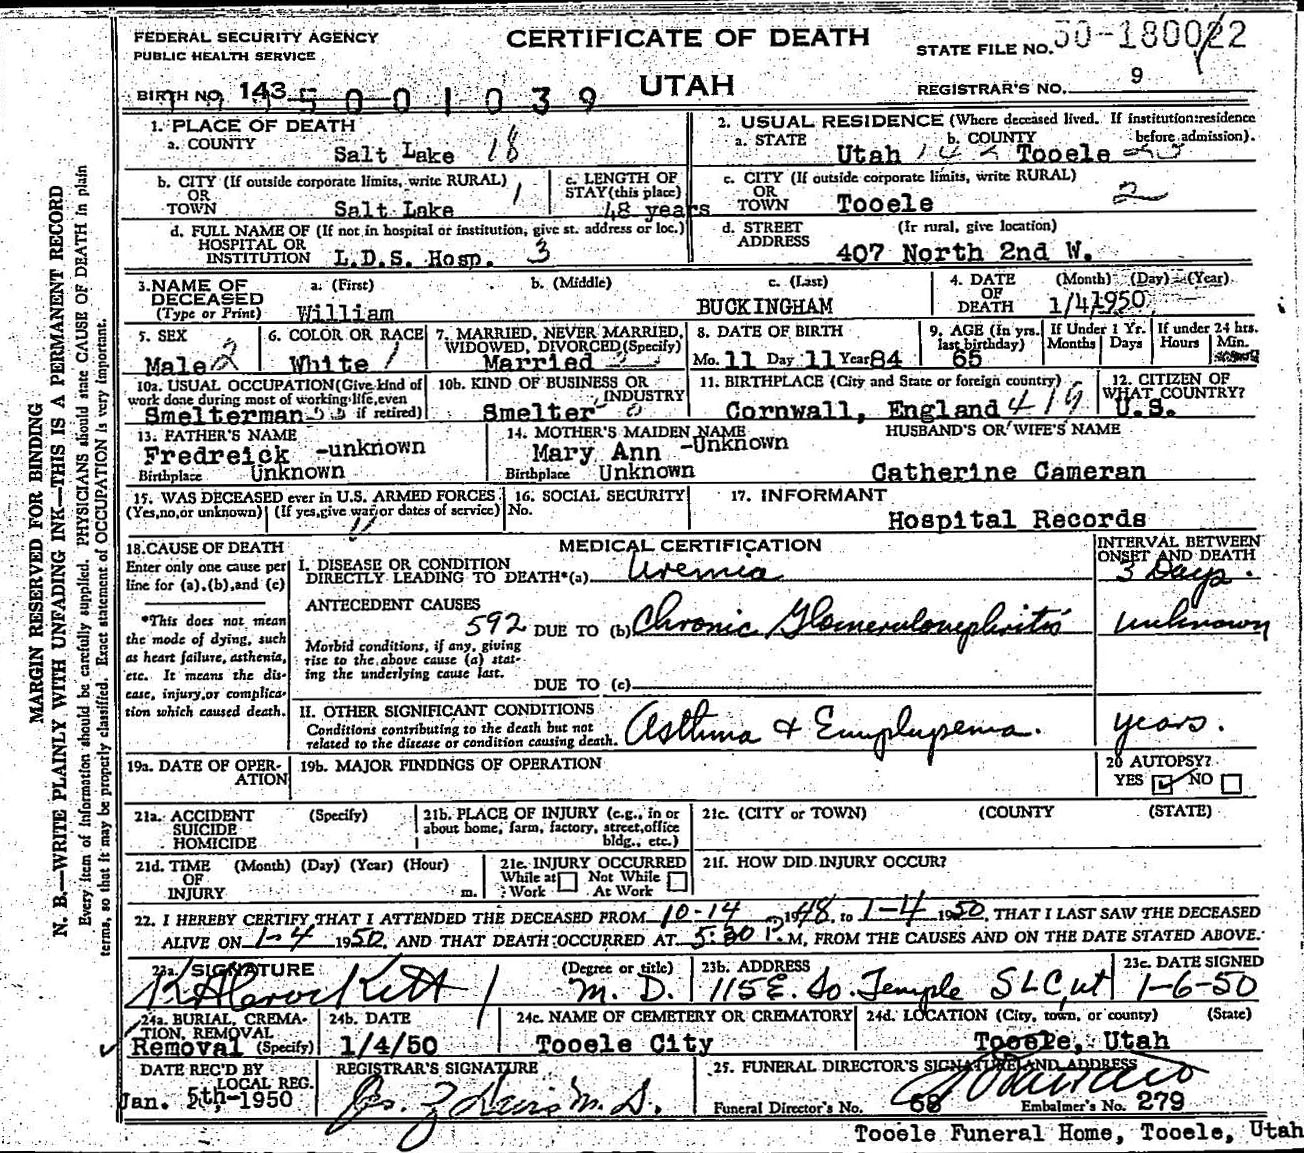 FEDERAL SECURITY AGENCY
PUBLIC HEALTH SERVICE
CERTIFICATE OF DEATH
UTAH
STATE FILE NO. 50-180022
REGISTRAR'S NO. 9
BIRTH NO. 143
5 0 0 1 0 3 9
MARGIN RESERVED FOR BINDING
N. B.—WRITE PLAINLY WITH UNFADING INK—THIS IS A PERMANENT RECORD
Every item of information should be carefully supplied. PHYSICIANS should state CAUSE OF DEATH in plain
terms, so that it may be properly classified. Exact statement of OCCUPATION is very important.
1. PLACE OF DEATH
a. COUNTY
Salt Lake 18
2. USUAL RESIDENCE (Where deceased lived. If institution: residence
before admission).
a. STATE Utah b. COUNTY Tooele
b. CITY (If outside corporate limits, write RURAL)
OR
TOWN Salt Lake 1
c. LENGTH OF
STAY (this place)
48 years
c. CITY (If outside corporate limits, write RURAL)
OR
TOWN Tooele 2
d. FULL NAME OF (If not in hospital or institution, give st. address or loc.)
HOSPITAL OR
INSTITUTION L.D.S. Hosp. 3
d. STREET (If rural, give location)
ADDRESS 407 North 2nd W.
3. NAME OF
DECEASED
(Type or Print)
a. (First) William
b. (Middle)
c. (Last) BUCKINGHAM
4. DATE
OF
DEATH
(Month) (Day) (Year)
1/4/1950
5. SEX
Male 2
6. COLOR OR RACE
White 1
7. MARRIED, NEVER MARRIED,
WIDOWED, DIVORCED (Specify)
Married 2
8. DATE OF BIRTH
Mo. 11 Day 11 Year 84
9. AGE (in yrs.
last birthday)
65
If Under 1 Yr.
Months Days
If under 24 hrs.
Hours Min.
10a. USUAL OCCUPATION (Give kind of
work done during most of working life, even
if retired)
Smelterman
10b. KIND OF BUSINESS OR
INDUSTRY
Smelter 0
11. BIRTHPLACE (City and State or foreign country)
Cornwall, England 419
12. CITIZEN OF
WHAT COUNTRY?
U.S.
13. FATHER'S NAME
Fredreick -unknown
Birthplace Unknown
14. MOTHER'S MAIDEN NAME
Mary Ann -Unknown
Birthplace Unknown
HUSBAND'S OR WIFE'S NAME
Catherine Cameran
15. WAS DECEASED ever in U.S. ARMED FORCES
(Yes, no, or unknown) (If yes, give war or dates of service)
16. SOCIAL SECURITY
No.
17. INFORMANT
Hospital Records
18. CAUSE OF DEATH
Enter only one cause per
line for (a), (b), and (c)
*This does not mean
the mode of dying, such
as heart failure, asthenia,
etc. It means the dis-
ease, injury, or complica-
tion which caused death.
MEDICAL CERTIFICATION
INTERVAL BETWEEN
ONSET AND DEATH
I. DISEASE OR CONDITION
DIRECTLY LEADING TO DEATH*(a) Uremia 3 Days.
ANTECEDENT CAUSES
592 DUE TO (b) Chronic Glomerulonephritis unknown
Morbid conditions, if any, giving
rise to the above cause (a) stat-
ing the underlying cause last.
DUE TO (c)
II. OTHER SIGNIFICANT CONDITIONS
Conditions contributing to the death but not
related to the disease or condition causing death.
Asthma & Emphysema. years.
19a. DATE OF OPER-
ATION
19b. MAJOR FINDINGS OF OPERATION
20 AUTOPSY?
YES ☑ NO ☐
21a. ACCIDENT (Specify)
SUICIDE
HOMICIDE
21b. PLACE OF INJURY (e.g., in or
about home, farm, factory, street, office
bldg., etc.)
21c. (CITY or TOWN) (COUNTY) (STATE)
21d. TIME (Month) (Day) (Year) (Hour)
OF
INJURY m.
21e. INJURY OCCURRED
While at ☐ Not While ☐
Work At Work
21f. HOW DID INJURY OCCUR?
22. I HEREBY CERTIFY THAT I ATTENDED THE DECEASED FROM 10-14 1948, to 1-4 1950, THAT I LAST SAW THE DECEASED
ALIVE ON 1-4 1950, AND THAT DEATH OCCURRED AT 5:30 P. M, FROM THE CAUSES AND ON THE DATE STATED ABOVE.
23a. SIGNATURE (Degree or title)
M. D.
23b. ADDRESS
115 E. So. Temple SLC, ut
23c. DATE SIGNED
1-6-50
24a. BURIAL, CREMA-
TION, REMOVAL
Removal (Specify)
24b. DATE
1/4/50
24c. NAME OF CEMETERY OR CREMATORY
Tooele City
24d. LOCATION (City, town, or county) (State)
Tooele, Utah
DATE REC'D BY
LOCAL REG.
Jan. 5th-1950
REGISTRAR'S SIGNATURE
25. FUNERAL DIRECTOR'S SIGNATURE AND ADDRESS
Funeral Director's No. 68 Embalmer's No. 279
Tooele Funeral Home, Tooele, Utah